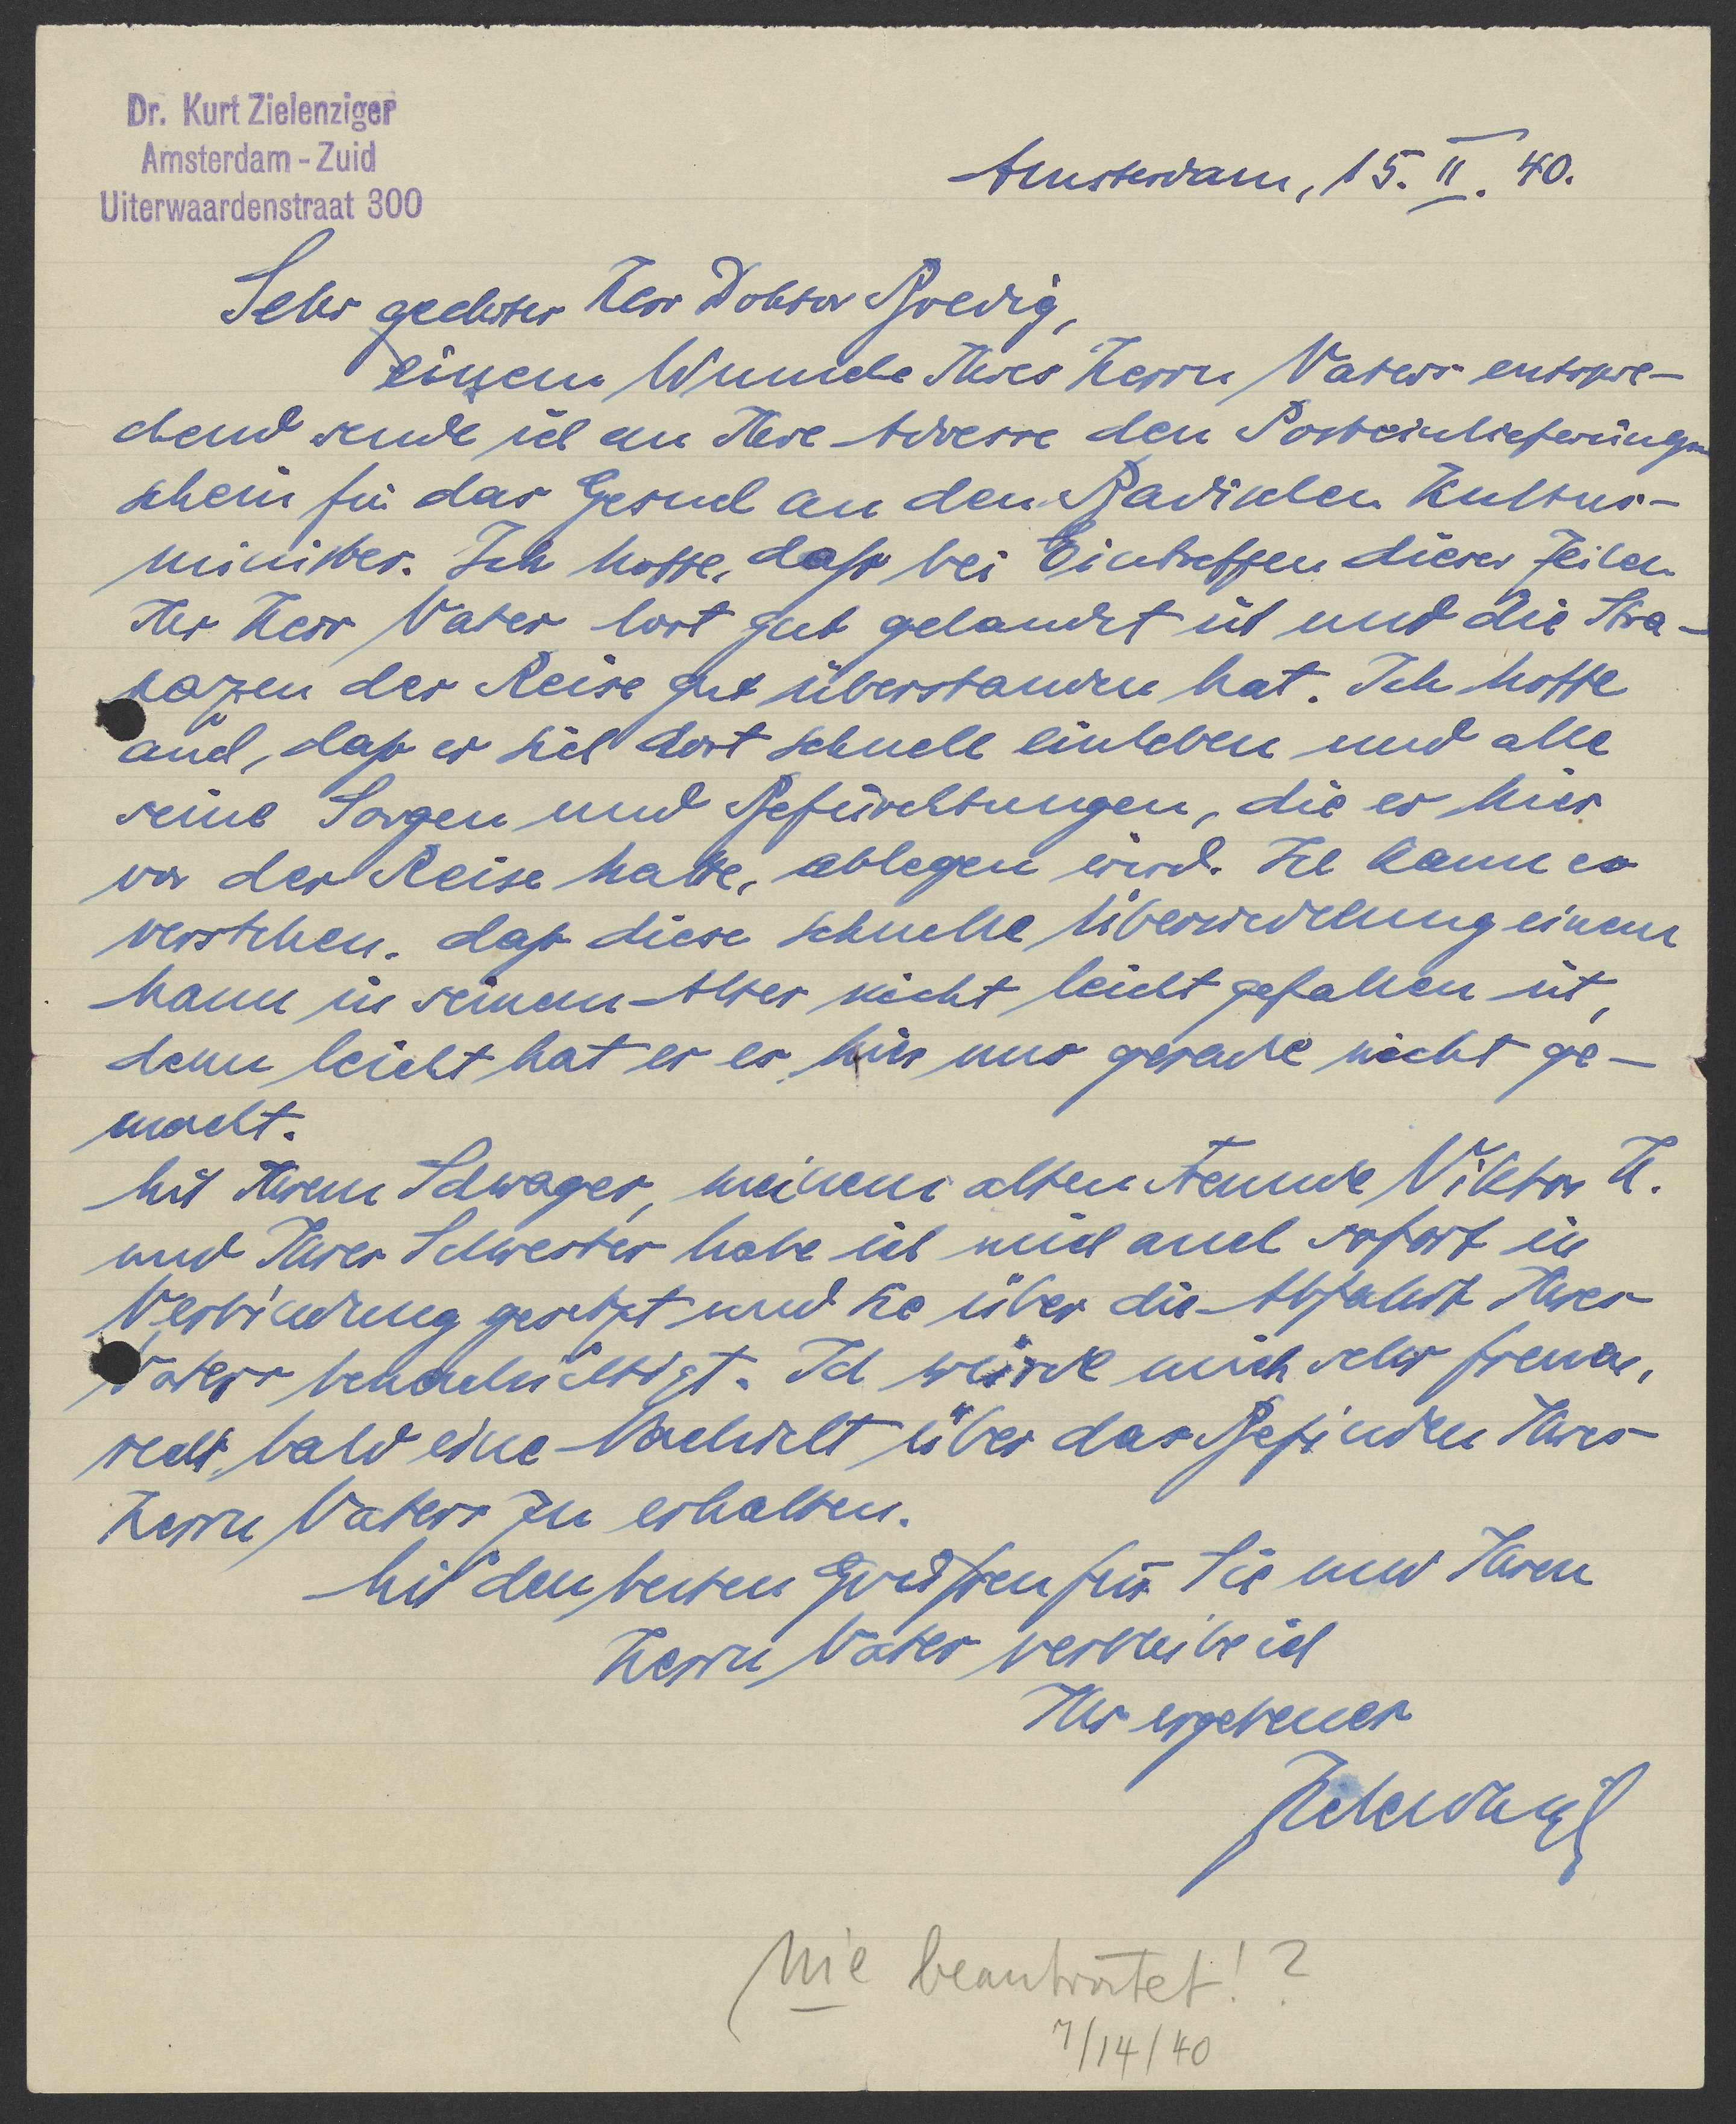 Dr. Kurt Zielenziger
Amsterdam - Zuid
Uiterwaardenstraat 300
Amsterdam, 15. II. 40.
Sehr geehrter Herr Doktor Bredig,
einem Wunsche Ihres Herrn Vaters entspre-
chend sende ich an Ihre Adresse den Posteinlieferungs-
schein für das Gesuch an den Badischen Kultus-
minister. Ich hoffe, daß bei Eintreffen dieser Zeilen
Ihr Herr Vater dort gut gelandet ist und die Stra-
pazen der Reise gut überstanden hat. Ich hoffe
auch, daß er sich dort schnell einleben und alle
seine Sorgen und Befürchtungen, die er hier
vor der Reise hatte, ablegen wird. Ich kann es
verstehen, daß diese schnelle Übersiedelung einem
Mann in seinem Alter nicht leicht gefallen ist,
denn leicht hat er es hier uns gerade nicht ge-
macht.
Mit Ihrem Schwager, meinem alten Freunde Viktor H.
und Ihrer Schwester habe ich mich auch sofort in
Verbindung gesetzt und sie über die Abfahrt Ihres
Vaters benachrichtigt. Ich würde mich sehr freuen,
recht bald eine Nachricht über das Befinden Ihres
Herrn Vaters zu erhalten.
Mit den besten Grüßen für Sie und Ihren
Herrn Vater verbleibe ich
Ihr ergebener
Zielenziger
Nie beantwortet!?
7/14/40